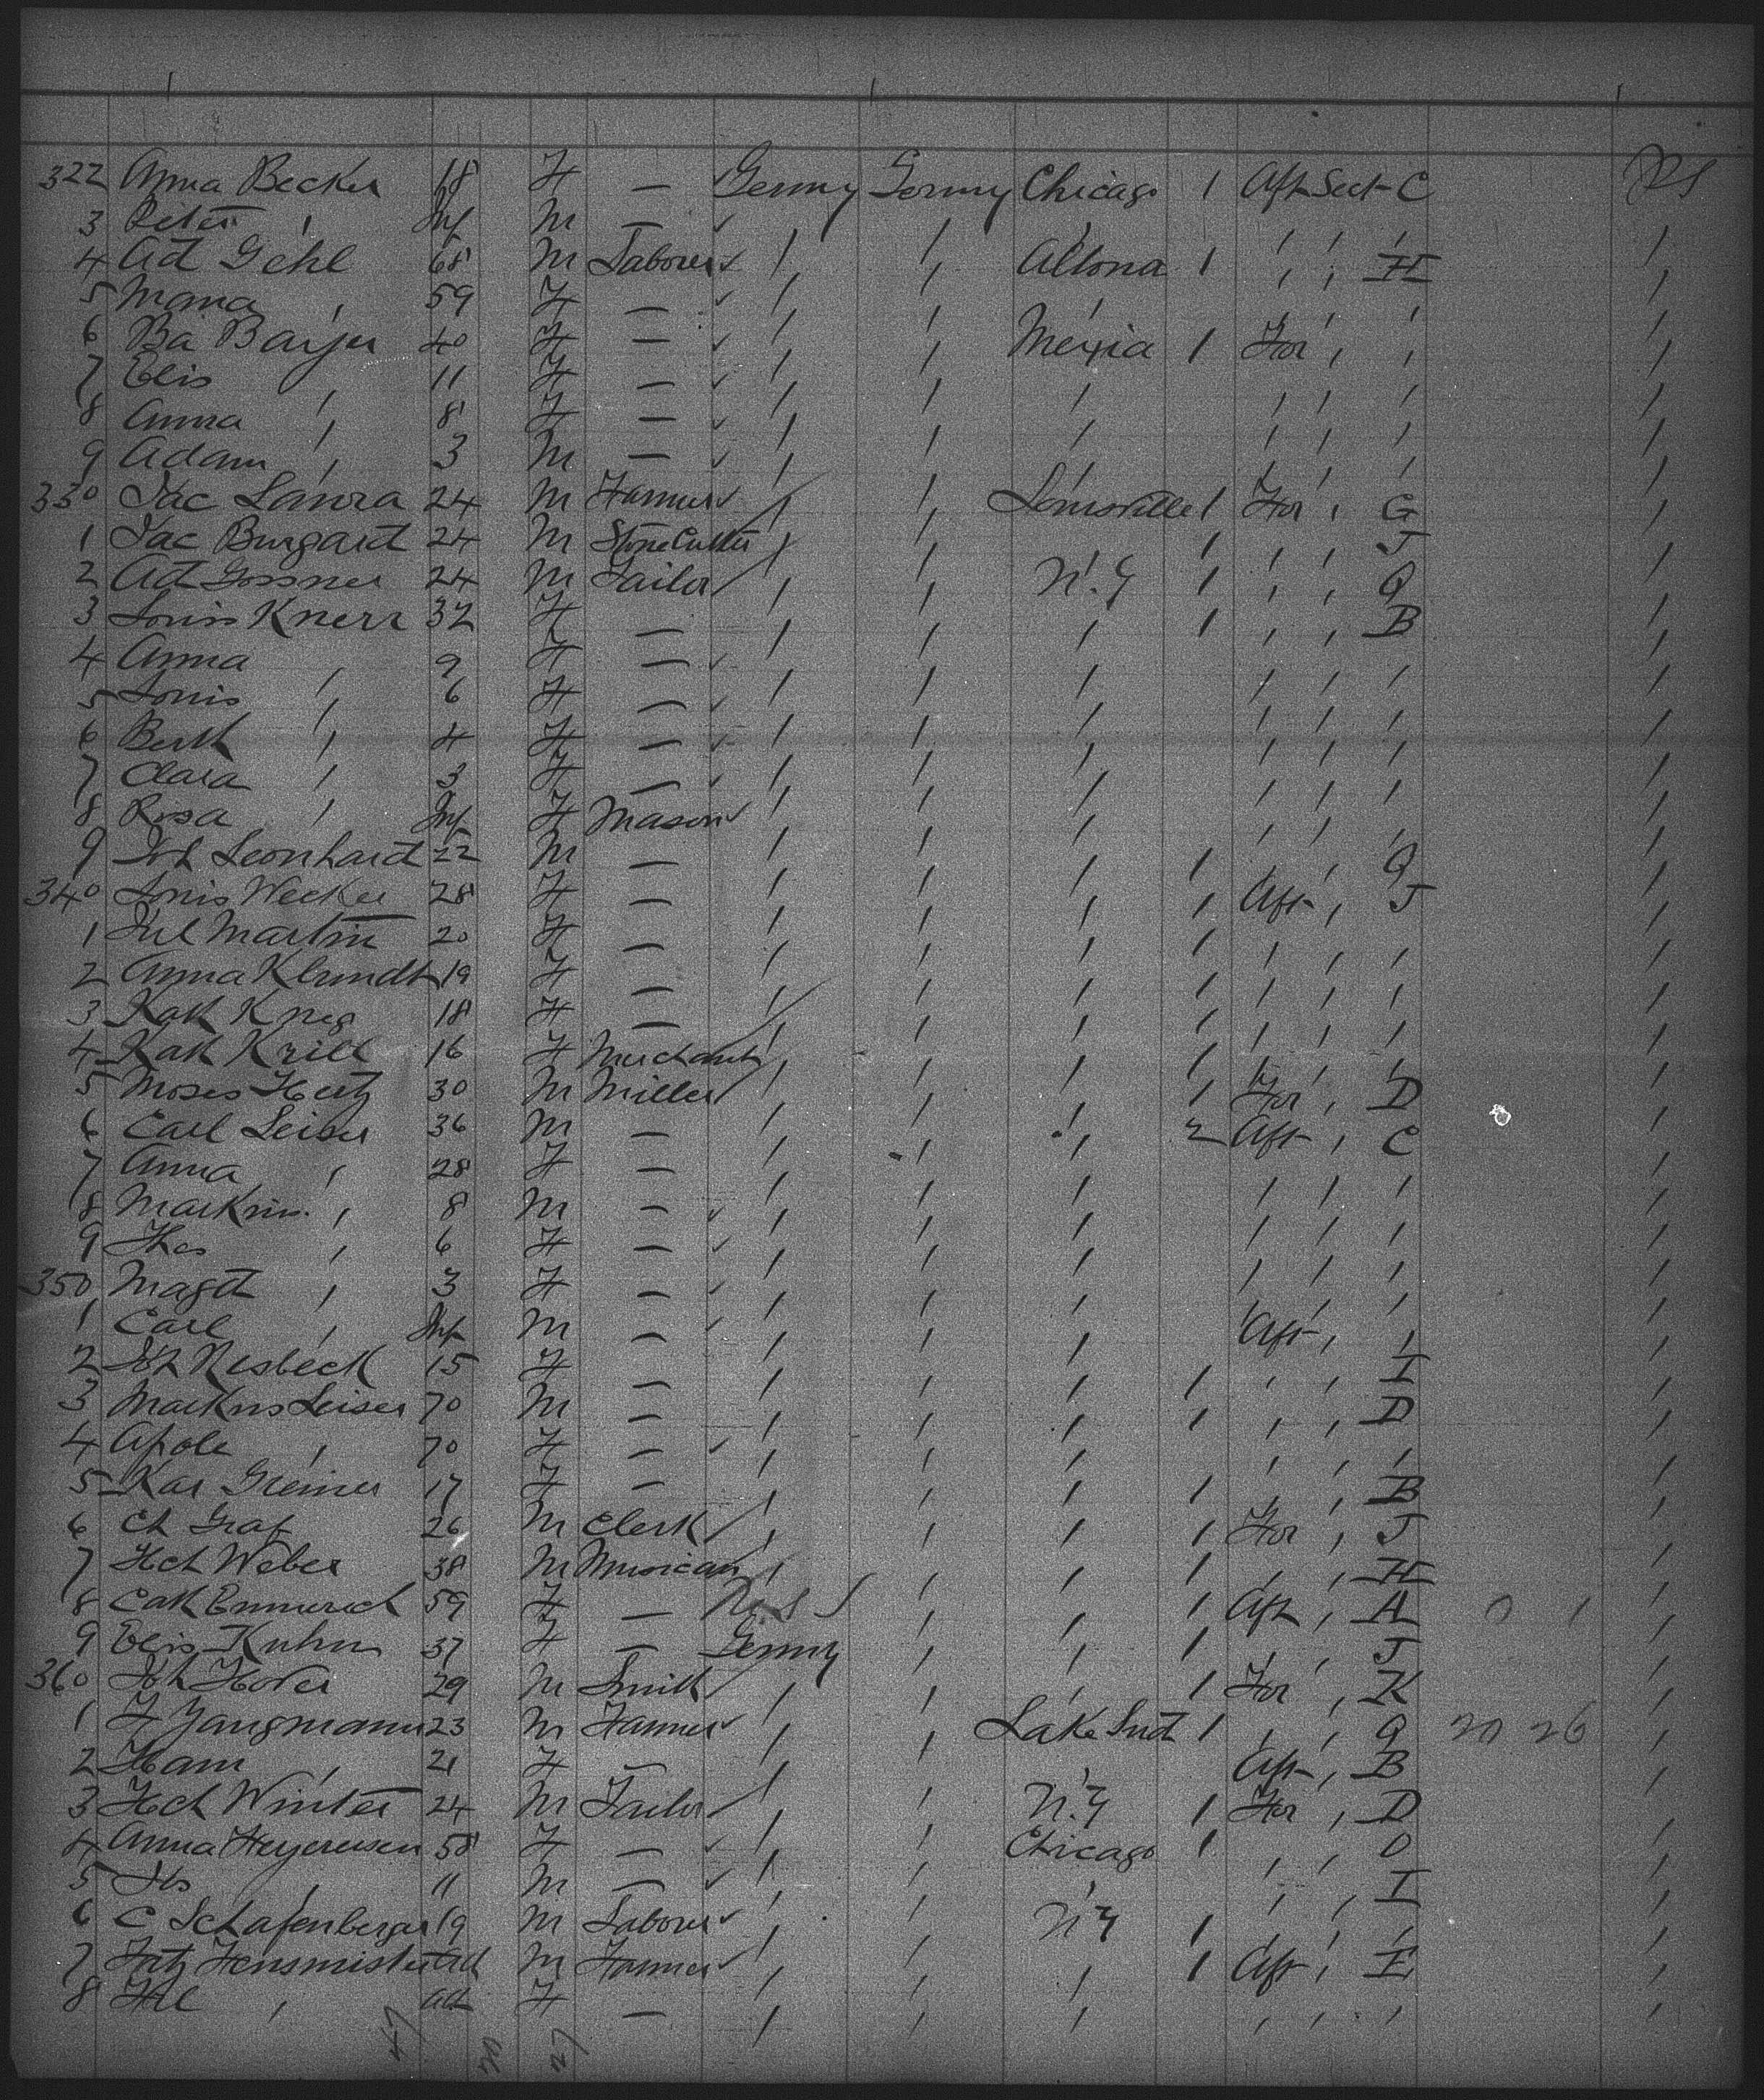 322 Anna Becker 18 F — Germy Germy Chicago 1 Aft Sect C
3 Peter " Inf M — " " " " " "
4 Ad Gehl 68 M Laborer " " Altona 1 " " H
5 " 59 F — " " " " " "
6 Ba Bayer 40 F — " " Mexia 1 For " "
7 Elis " 11 F — " " " " " "
8 Anna " 8 F — " " " " " "
9 Adam " 3 M — " " " " " "
330 Jac 24 M Farmer " " Louisville 1 For " G
1 Jac Burgard 24 M Stone Cutter " " " 1 " " J
2 Ad Gossner 24 M Tailor " " N.Y 1 " " Q
3 Louis Knerr 32 F — " " " 1 " " B
4 Anna " 9 F — " " " " " "
5 Louis " 6 F — " " " " " "
6 Berth " 4 F — " " " " " "
7 Clara " 3 F — " " " " " "
8 Rosa " Inf F Mason " " " " " "
9 Joh Leonhard 22 M — " " " 1 " " Q
340 Louis Wecker 28 F — " " " 1 Aft " J
1 Jul Martin 20 F — " " " 1 " " "
2 Anna Klundt 19 F — " " " 1 " " "
3 Kath 18 F — " " " 1 " " "
4 Kath Krill 16 F Merchant " " " 1 " " "
5 Moses Hertz 30 M Miller " " " 1 For " D
6 Carl Leiser 36 M — " " " 2 Aft " C
7 Anna " 28 F — " " " " " "
8 Markus " 8 M — " " " " " "
9 Thes " 6 F — " " " " " "
350 Magd " 3 F — " " " " " "
1 Carl " Inf M — " " " Aft " "
2 Joh 15 F — " " " 1 " " I
3 Markus Leiser 70 M — " " " 1 " " D
4 " 70 F — " " " " " "
5 Kar Greiner 17 F — " " " 1 " " B
6 Ch Graf 26 M Clerk " " " 1 For " J
7 Hch Weber 38 M Musican " " " 1 " " H
8 Cath Emmerich 59 F — " " 1 Aft " A 0 1
9 Elis Kuhn 37 F — Germy " " 1 " " J
360 Joh 29 M Smith " " " 1 For " K
1 F Yangmann 23 M Farmer " " 1 " " Q 20 26
2 " 21 F — " " " Aft " B
3 Hch Winter 24 M Tailor " " N.Y 1 For " D
4 Anna 58 F — " " Chicago 1 " " O
5 " 11 M — " " " " " I
6 C Schafenberger 19 M Laborer " " N.Y 1 " " "
7 ad M Farmer " " " 1 Aft " E
8 " ad F — " " " " " "